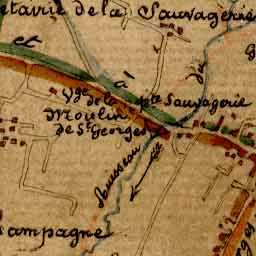 etairie de la Sauvagerie
et
à
du
Vge de la Pte Sauvagerie
Moulin
de St Georges
Ruisseau
ampagne